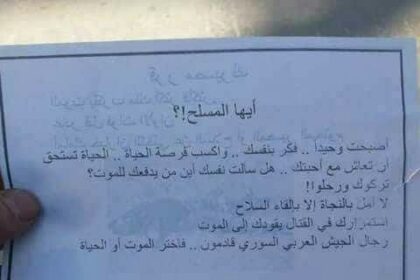 أيها المسلح!؟
أصبحت وحيداً .. فكر بنفسك .. واكسب فرصة الحياة .. الحياة تستحق
أن تعاش مع أحبتك .. هل سألت نفسك أين من يدفعك للموت؟
تركوك ورحلوا!
لا أمل بالنجاة إلا بالقاء السلاح
استمرارك في القتال يقودك إلى الموت
رجال الجيش العربي السوري قادمون .. فاختر الموت أو الحياة